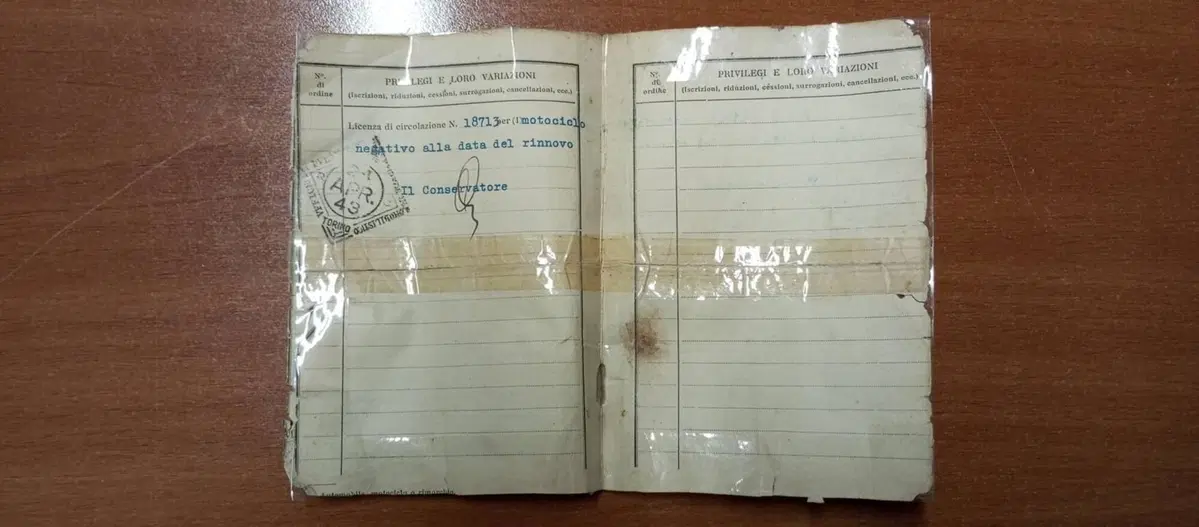 Nº.
di
ordine
PRIVILEGI E LORO VARIAZIONI
(Iscrizioni, riduzioni, cessioni, surrogazioni, cancellazioni, ecc.)
Licenza di circolazione N. 18713 per (1) motociclo
negativo alla data del rinnovo
Il Conservatore
2 APR. 43
TORINO
Automobile, motociclo o rimorchio.
Nº.
di
ordine
PRIVILEGI E LORO VARIAZIONI
(Iscrizioni, riduzioni, cessioni, surrogazioni, cancellazioni, ecc.)